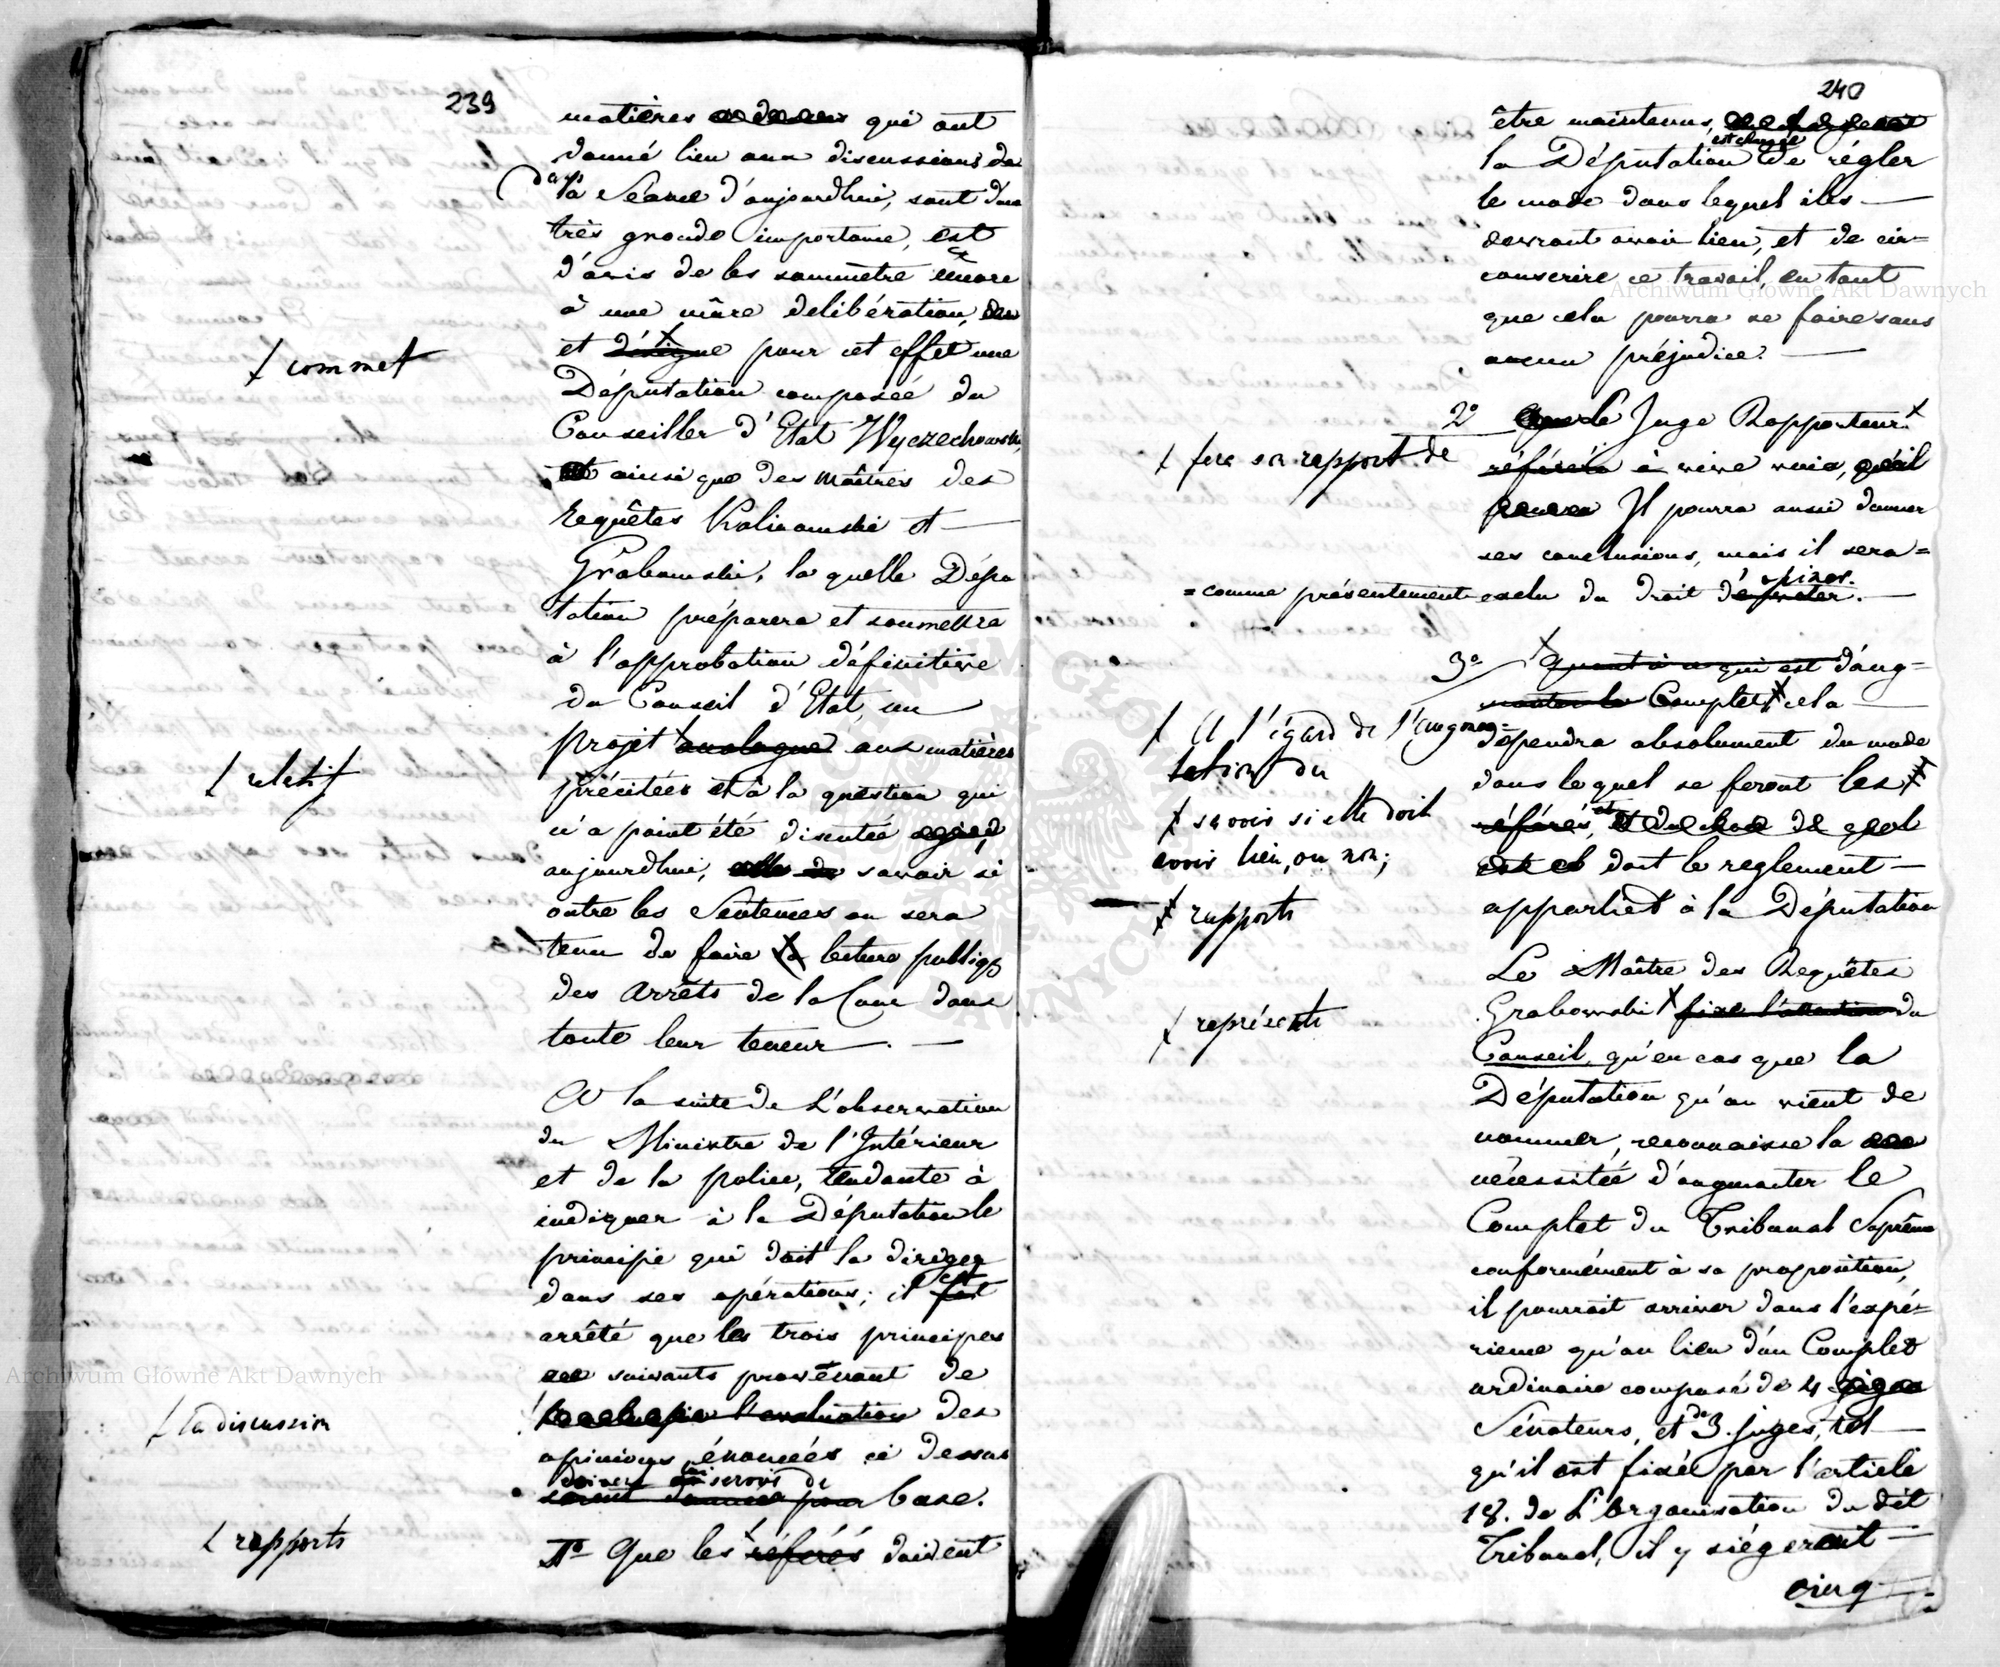 239
matières qui ont
donné lieu aux discussions de
dans
la Séance d'aujourdhui, sont d'une
très grande importance, est
d'avis de les sommetre encore
à une mûre delibération,
et désigne pour cet effet une
ł commet
Députation composée du
Conseiller d'Etat Wyczechowski,
ainsi que des Maîtres des
requêtes Kalinowski et
Grabowski, la quelle Dépu
tation préparera et soumettra
à l'approbation définitive
du Conseil d'Etat, un
projet analogue aux matières
ł relatif
précitées et à la question qui
n'a point été discutée
aujourdhui, savoir si
outre les Sentences on sera
tenu de faire la lecture publiq
des Arrêts de la Cour dans
toute leur teneur.
A la suite de L'observation
du Ministre de l'Intérieur
et de la police, tendante à
indiquer à la Députation le
principe qui doit la diriger
est
dans ses opérations; il fut
arrêté que les trois principes
suivants provenant de
l'evaluation des
ł la discussion
opinions énoncées ci dessus
doivent servir de
seront pour base.
1º Que les référés doivent
ł rapports
240
être maintenus,
est chargée
la Députation de régler
le mode dans lequel ils
devront avoir lieu, et de cir=
conscrire ce travail, en tant
que cela pourra se faire sans
aucun préjudice.
2º Que le Juge Rapporteur
ł fera son rapport de
référera à vive voix, qu'il
Il pourra aussi donner
ses conclusions, mais il sera=
=comme présentement exclu du droit d'
opiner.
3º Quant à ce qui est d'aug=
menter le Complet cela
ł A l'égard de l'augmen=
tation du
dépendra absolument du mode
dans lequel se feront les
ł savoir si elle doit
avoir lieu, ou non;
référés, et
dont le reglement
appartiet à la Députation
ł rapports
Le Maître des Requêtes
Grabowski fixe l'attention du
ł représente
Conseil, qu'en cas que la
Députation qu'on vient de
nommer, reconnaisse la
nécessitée d'augmenter le
Complet du Tribunal Suprême
conformément à sa proposition,
il pourrait arriver dans l'expé=
rience qu'au lieu d'un Complet
ordinaire composé de 4
Sénateurs, et de 3. juges, tel
qu'il est fixée par l'article
18. de L'Organisation du dit
Tribunal, il y siégeront
cinq
Archiwum Główne Akt Dawnych
Archiwum Główne Akt Dawnych